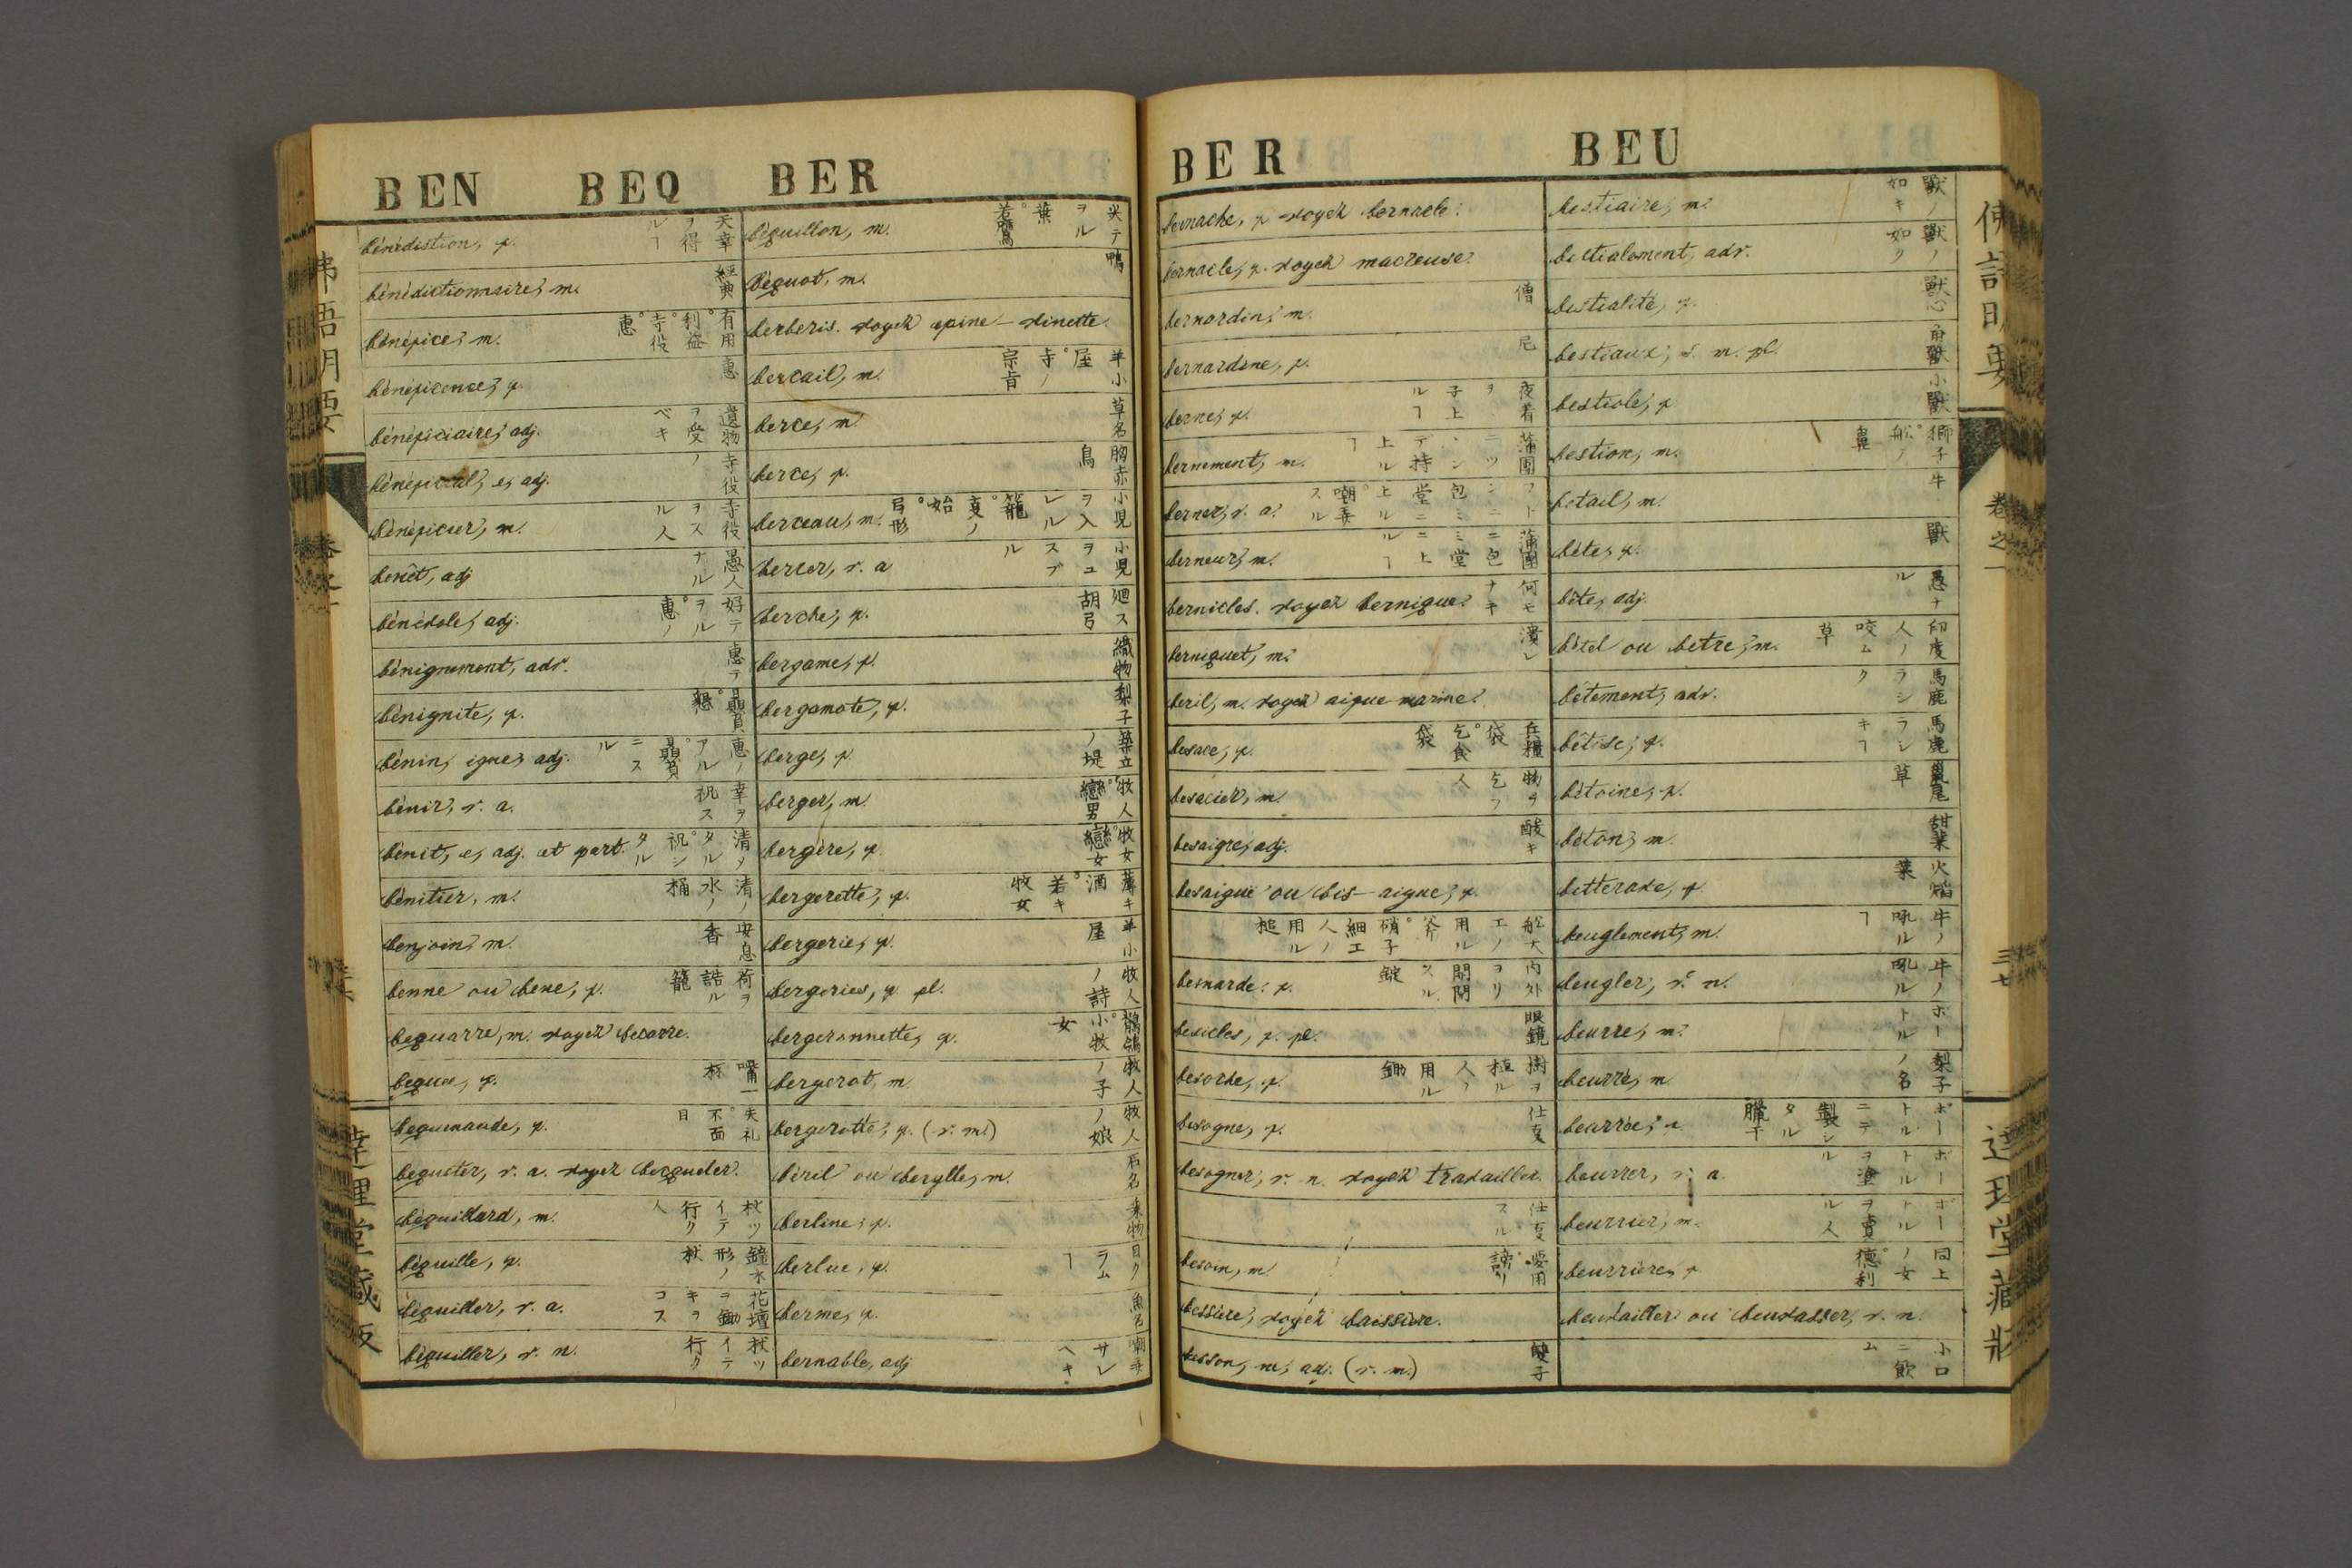 BEN BEQ BER
bénédiction, f. 天幸ヲ得ルヿ
bénédictionnaire, m. 經典
bénéfice, m. 有用°利益°寺役°惠
bénéficence, f. 惠
bénéficiaire, adj. 遺物ヲ受ベキ
bénéficial, e, adj. 寺役ノ
bénéficier, m. 寺役ヲスル人
benêt, adj 愚人ナル
bénévole, adj. 好テヲル°惠ノ
bénignement, adv. 惠テ
bénignité, f. 贔負°懇
bénin, igne, adj. 惠ノアル°贔負ニスル
bénir, v. a. 幸ヲ祝ス
bénit, e, adj. et part. 清メタル°祝シタル
bénitier, m. 清ノ水ノ桶
benjoin, m. 安息香
benne ou bene, f. 荷ヲ詰ル籠
bequarre, m. voyez becarre.
beque, f.
bequenaude, f. 失礼°不面目
bequeter, v. a. voyez becqueter.
béquillard, m. 杖ツイテ行ク人
béquille, f.
béquiller, v. a. 花壇ヲ鋤キヲコス
béquiller, v. n. 杖ツイテ行ク
béquillon, m.
béquot, m. 鴫
berberis. voyez epine-vinette.
bercail, m. 羊小屋°寺ノ宗旨
berce, m. 草名
berce, f. 胸赤鳥
berceau, m. 小児ヲ入レル籠°夏ノ始°弓形
bercer, v. a 小児ヲユスブル
berche, f.
bergame, f. 織物
bergamote, f. 梨子
berge, f. 築立ノ堤
berger, m. 牧人°戀男
bergère, f. 牧女°戀女
bergerette, f. 薄キ酒°若キ牧女
bergerie, f. 羊小屋
bergeries, f. pl. 牧人ノ詩
bergeronnette, f. 鶺鴒°小牧女
bergerot, m. 牧人ノ子
bergerotte, f. (v. m.) 牧人ノ娘
béril ou berylle, m. 石名
berline, f. 乗物
berlue, f. 目クラムヿ
berme, f.
bernable, adj 嘲弄サレヘキ
BER BEU
bernache, f. voyez bernacle.
bernacle, f. voyez macreuse.
bernardin, m. 僧
bernardine, f. 尼
berne, f.
bernement, m.
berner, v. a.
berneur, m.
bernicles. voyez bernique. 何モナキ
berniquet, m. 潰レ
beril, m. voyez aigue marine.
besace, f. 兵糧袋°乞食袋
besacier, m. 物ヲ乞フ人
besaigre, adj. 酸キ
besaiguë ou bis-aigue, f.
船大工ノ用ル斧°硝子細工人ノ用ル槌
besnarde. f. 内外ヲリ開閉スル錠
besicles, f. pl. 眼鏡
besoche, f. 樹ヲ植ル人ノ用ル鋤
besogne, f. 仕夏
besogner, v. n. voyez travailler.
仕夏スル
besoin, m. 要用°謗リ
bessiere, voyez baissiere.
besson, ne, adj. (v. m.) 雙子
bestiaire, m. 獸ノ如キ
bestialement, adv. 獸ノ如ク
bestialité, f. 獸心
bestiaux, s. m. pl.
bestiole, f 小獸
bestion, m. 獅子°船ノ鼻
betail, m. 牛
bête, f. 獸
bête, adj. 愚ナル
bétel ou betre, m. 印度人ノ咬ム草
bêtement, adv. 馬鹿ラシク
bêtise, f. 馬鹿ラシキヿ
bétoine, f.
béton, m.
betterave, f. 火焔菜
beuglement, m. 牛ノ吼ルヿ
beugler, v. n. 牛ノ吼ル
beurre, m. ボートル
beurré, m 梨子ノ名
beurrée, f. ボートルニテ製シタル
beurrer, v. a. ボートルヲ塗ル
beurrier, m. ボートルヲ賣ル人
beurriere, f 同上ノ女°德利
beuvailler ou beuvasser, v. n.
小口ニ飲ム
佛語明要 卷之一 三七 達理堂藏版